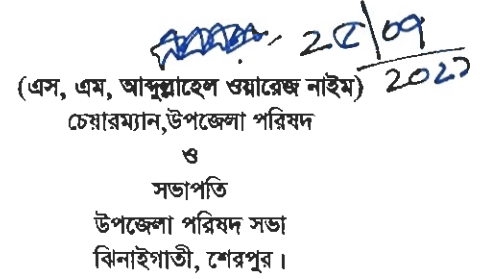 ২৫/০৭
২০২১
(এস, এম, আব্দুল্লাহেল ওয়ারেজ নাইম)
চেয়ারম্যান,উপজেলা পরিষদ
ও
সভাপতি
উপজেলা পরিষদ সভা
ঝিনাইগাতী, শেরপুর।